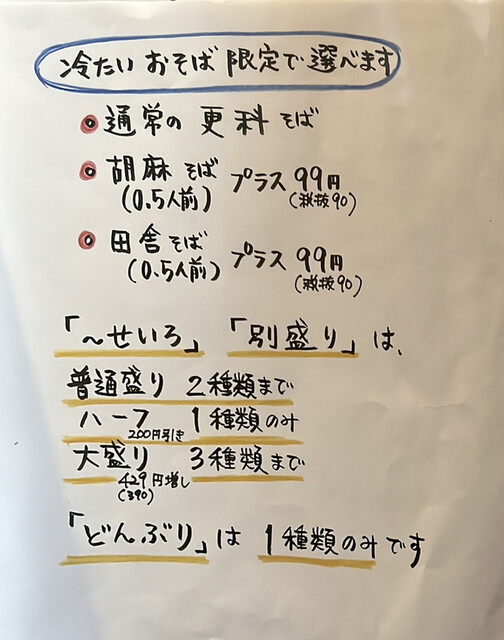 冷たい おそば 限定で 選べます
通常の 更科 そば
胡麻 そば プラス 99円
(0.5人前) (税抜90)
田舎 そば プラス 99円
(0.5人前) (税抜90)
「〜せいろ」「別盛り」は、
普通盛り 2種類まで
ハーフ 1種類のみ
200円引き
大盛り 3種類まで
429円増し
(390)
「どんぶり」は 1種類のみです